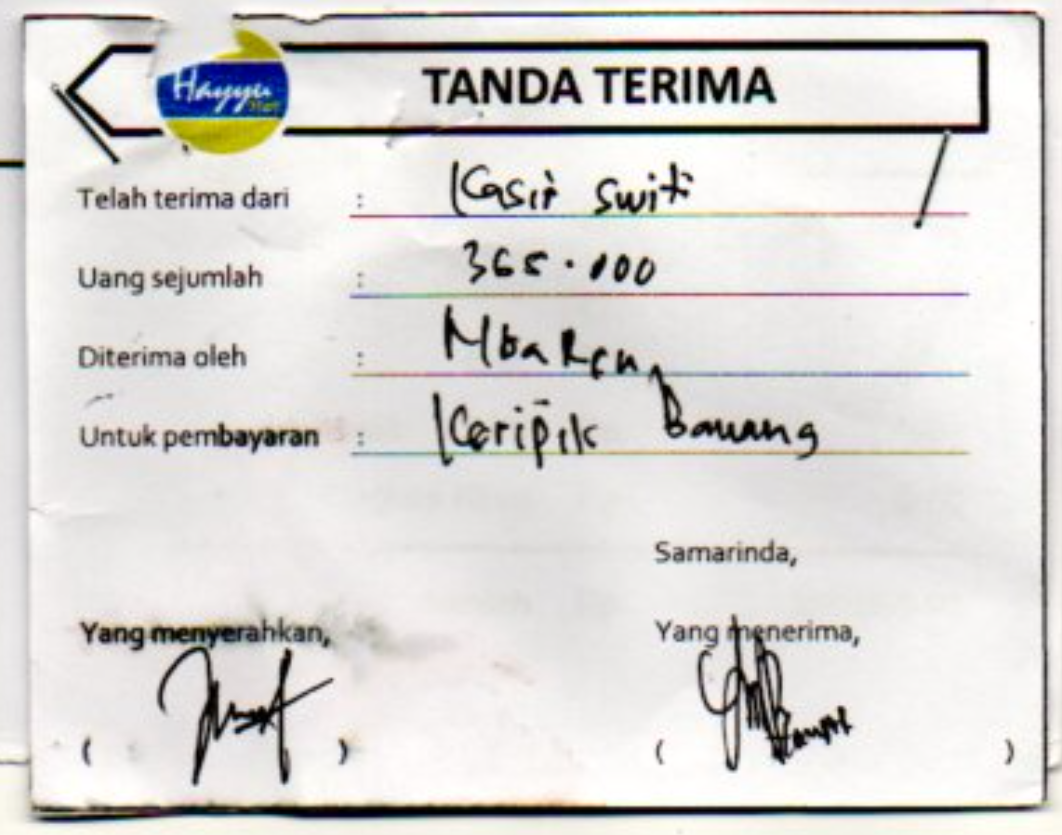 Hayyu Mart
TANDA TERIMA
Telah terima dari : Kasir Switi
Uang sejumlah : 365.000
Diterima oleh : Mba
Untuk pembayaran : Keripik Bawang
Samarinda,
Yang menyerahkan,
Yang menerima,
( )
( )